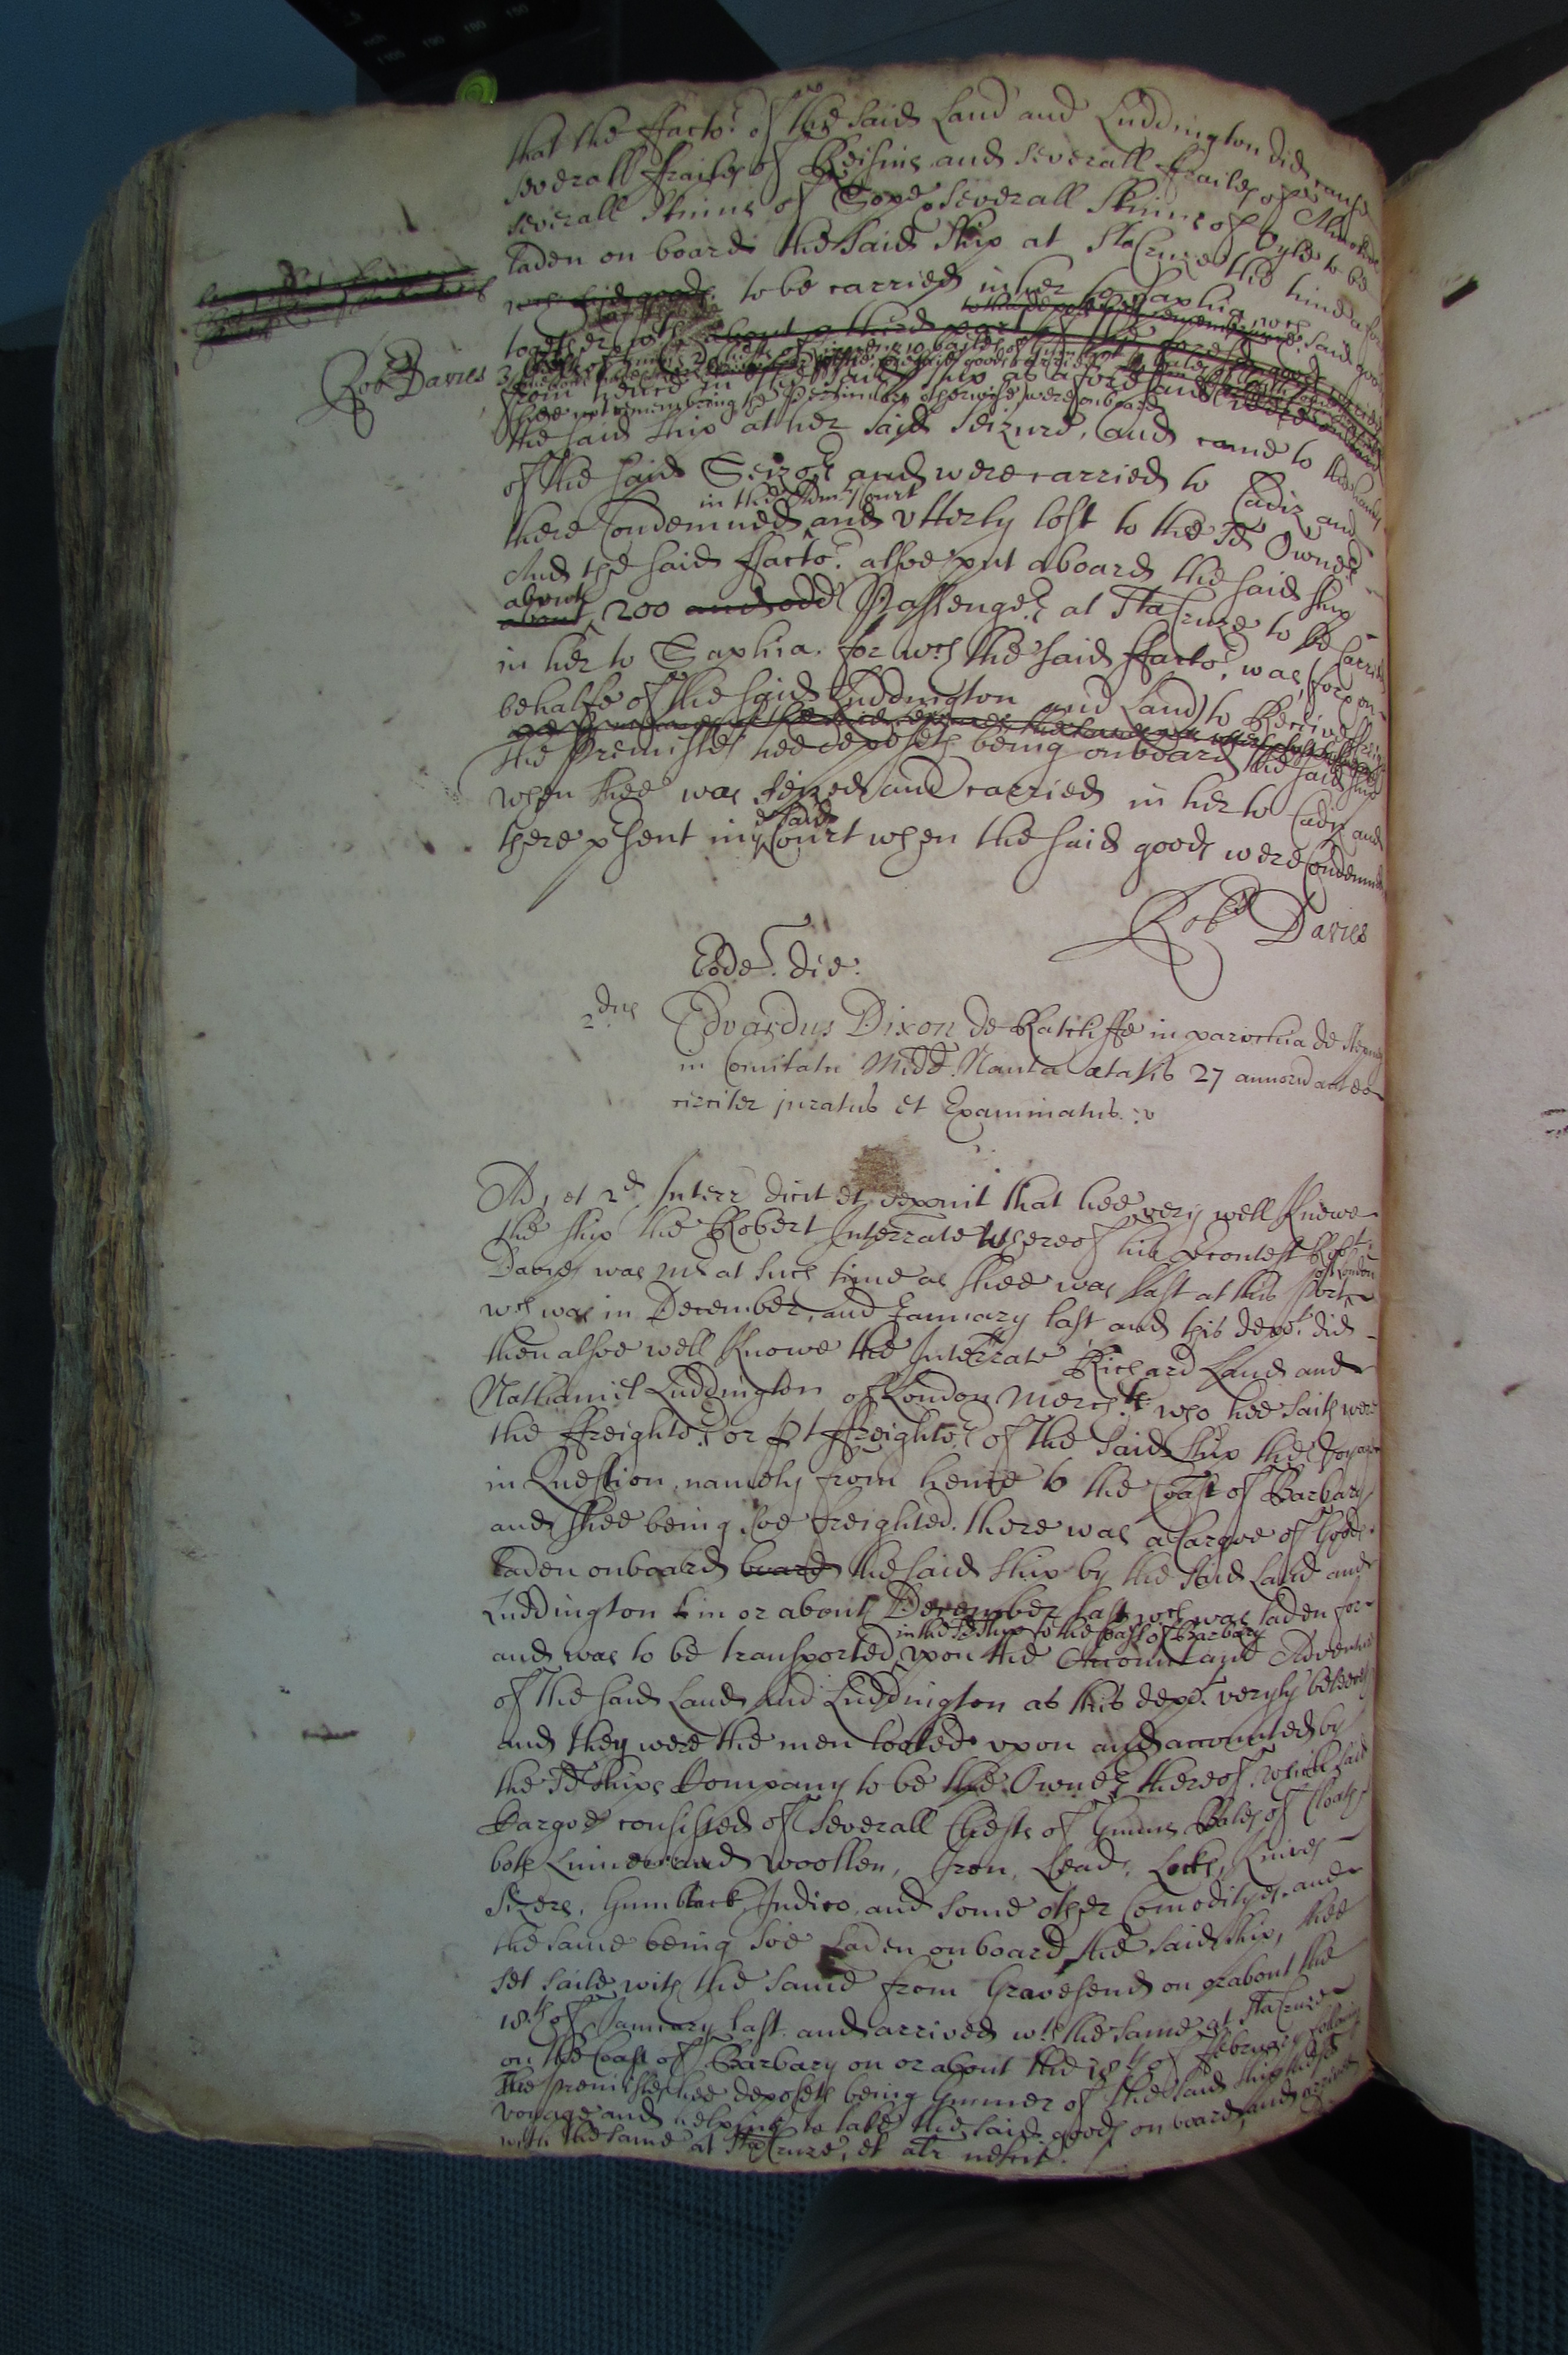 that the ffactor of the said Land and Luddington did cause
severall frailes of Reisins and severall frailes of Almonds
severall skinns of Sope, severall skinns of Oyle to be
laden on board the said ship at Sta Cruze the hind
to be carried in her to Saphia, wch said goods
together wth about a third part of the foresd goods carried
Rob Davies
from hence in the said ship as aforesaid
shee not remembring the perticulers otherwise were onboard
the said ship at her said seizure, and came to the hands
of the said Seizors and were carried to Cadiz and
in the Admty Court
there Condemned and utterly lost to the sd Owners
And the said ffactor alsoe put aboard the said ship
about
about 200 and odd Passengers at Sta Cruze to be Carried
in her to Saphia, for wch the said ffactor was, for on
behalfe of the said Luddington and Land, to Receive ffreight
the Premisses hee deposeth being onboard the said ship
when shee was seized and carried in her to Cadiz and
said
there psent in ye Court when the said goods were Condemned
Robt Davies
Eode die.
2dus
Edvardus Dixon de Ratcliffe in parochia de Stepney
in Comitatu Midd Nauta ætatis 27 annoru aut eo
circiter juratus et Examinatus
Ad 1 et 2d Interr dicit et deponit that hee very well Knowe
the ship the Robert Interrate whereof his Contest Robt
Davies was Mr at such time as shee was last at this Port
of London
wch was in December, and January last and this dept did
then alsoe well Knowe the Interrate Richard Land and
Nathaniel Luddington of London Merchts who hee saith were
the ffreighters or pt ffreighters of the said ship the voyage
in Question, namely from hence to the Coast of Barbary
and shee being soe freighted there was a Cargoe of Goods
laden onboard board the said ship by the said Land and
Luddington in or about December last wch was laden for
in the sd ship to the Coast of Barbary
and was to be transported upon the Account and Adventure
of the said Land and Luddington as this dept veryly beleeveth
and they were the men looked upon and accounted by
the sd ships Company to be the Owners thereof, which said
Cargoe consisted of severall Chests of Gunns Bales of Cloath
both Linnen and Woollen, Iron, Lead, Locks, Knives
Sizers, Gumblack, Indico, and some other Comodityes, and
the same being soe laden onboard the said ship, shee
set saile with the same from Gravesend on or about the
18th of January last and arrived wth the same at Sta Cruze
on the Coast of Barbary on or about the 18th of ffebruary following
The premisses hee deposeth being Gunner of the said ship the sd
voyage and helping to lade the said goods on board, and arriving
with the same at Sta Cruze, et alr nescit.